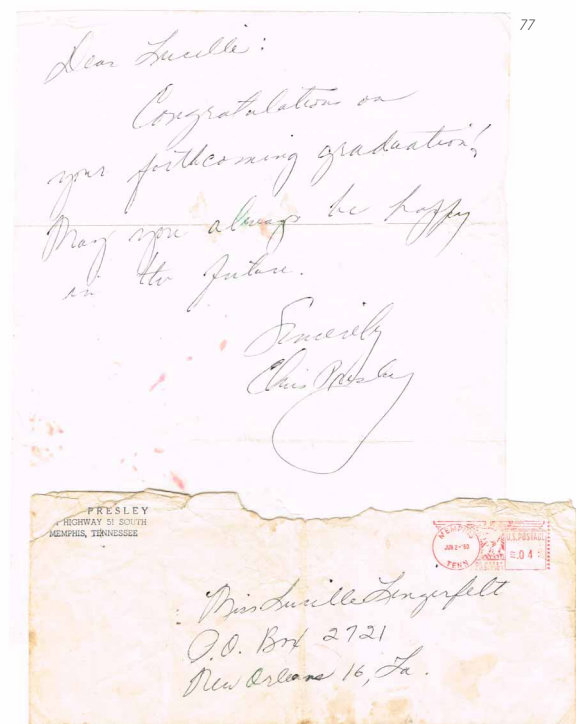 77
Dear Lucille:
Congratulations on
your forthcoming graduation!
May you always be happy
in the future.
Sincerely
Elvis Presley
PRESLEY
HIGHWAY 51 SOUTH
MEMPHIS, TENNESSEE
MEMPHIS
TENN
U.S.POSTAGE
.04
Miss Lucille Lingerfelt
P.O. Box 2721
New Orleans 16, La.